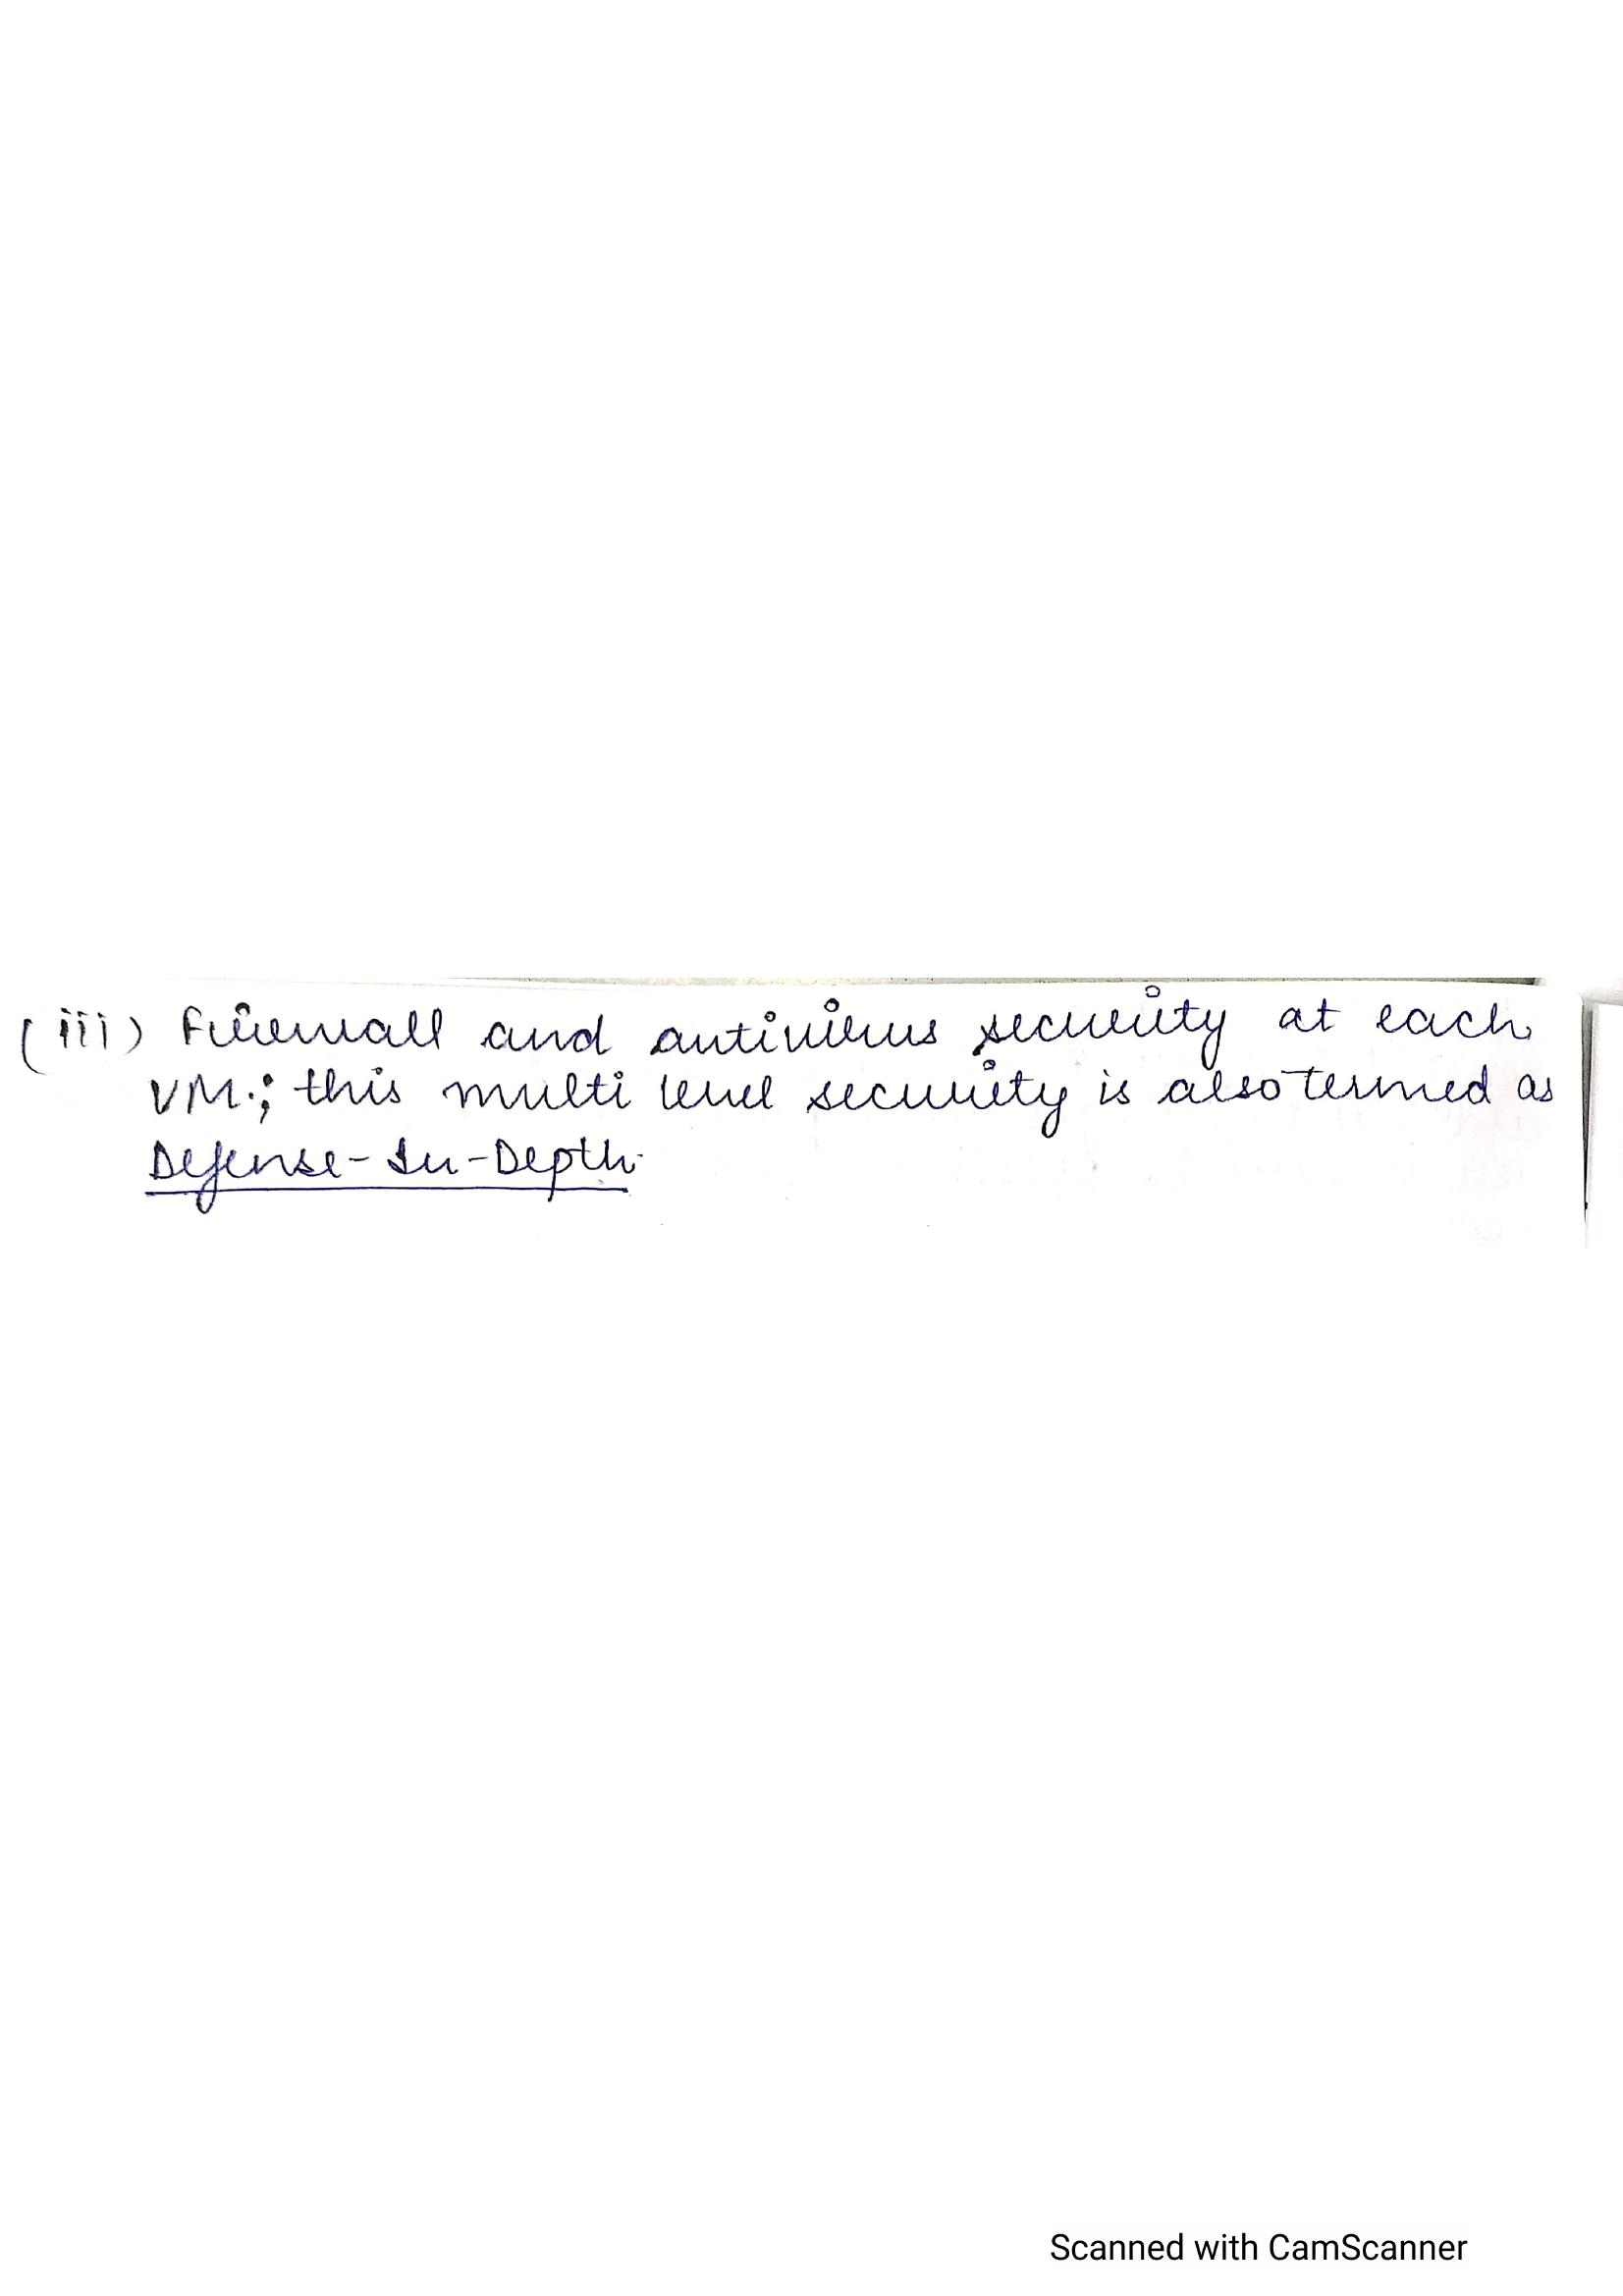 (iii) Firewall and antivirus security at each
VM.; this multi level security is also termed as
Defense-In-Depth.
Scanned with CamScanner